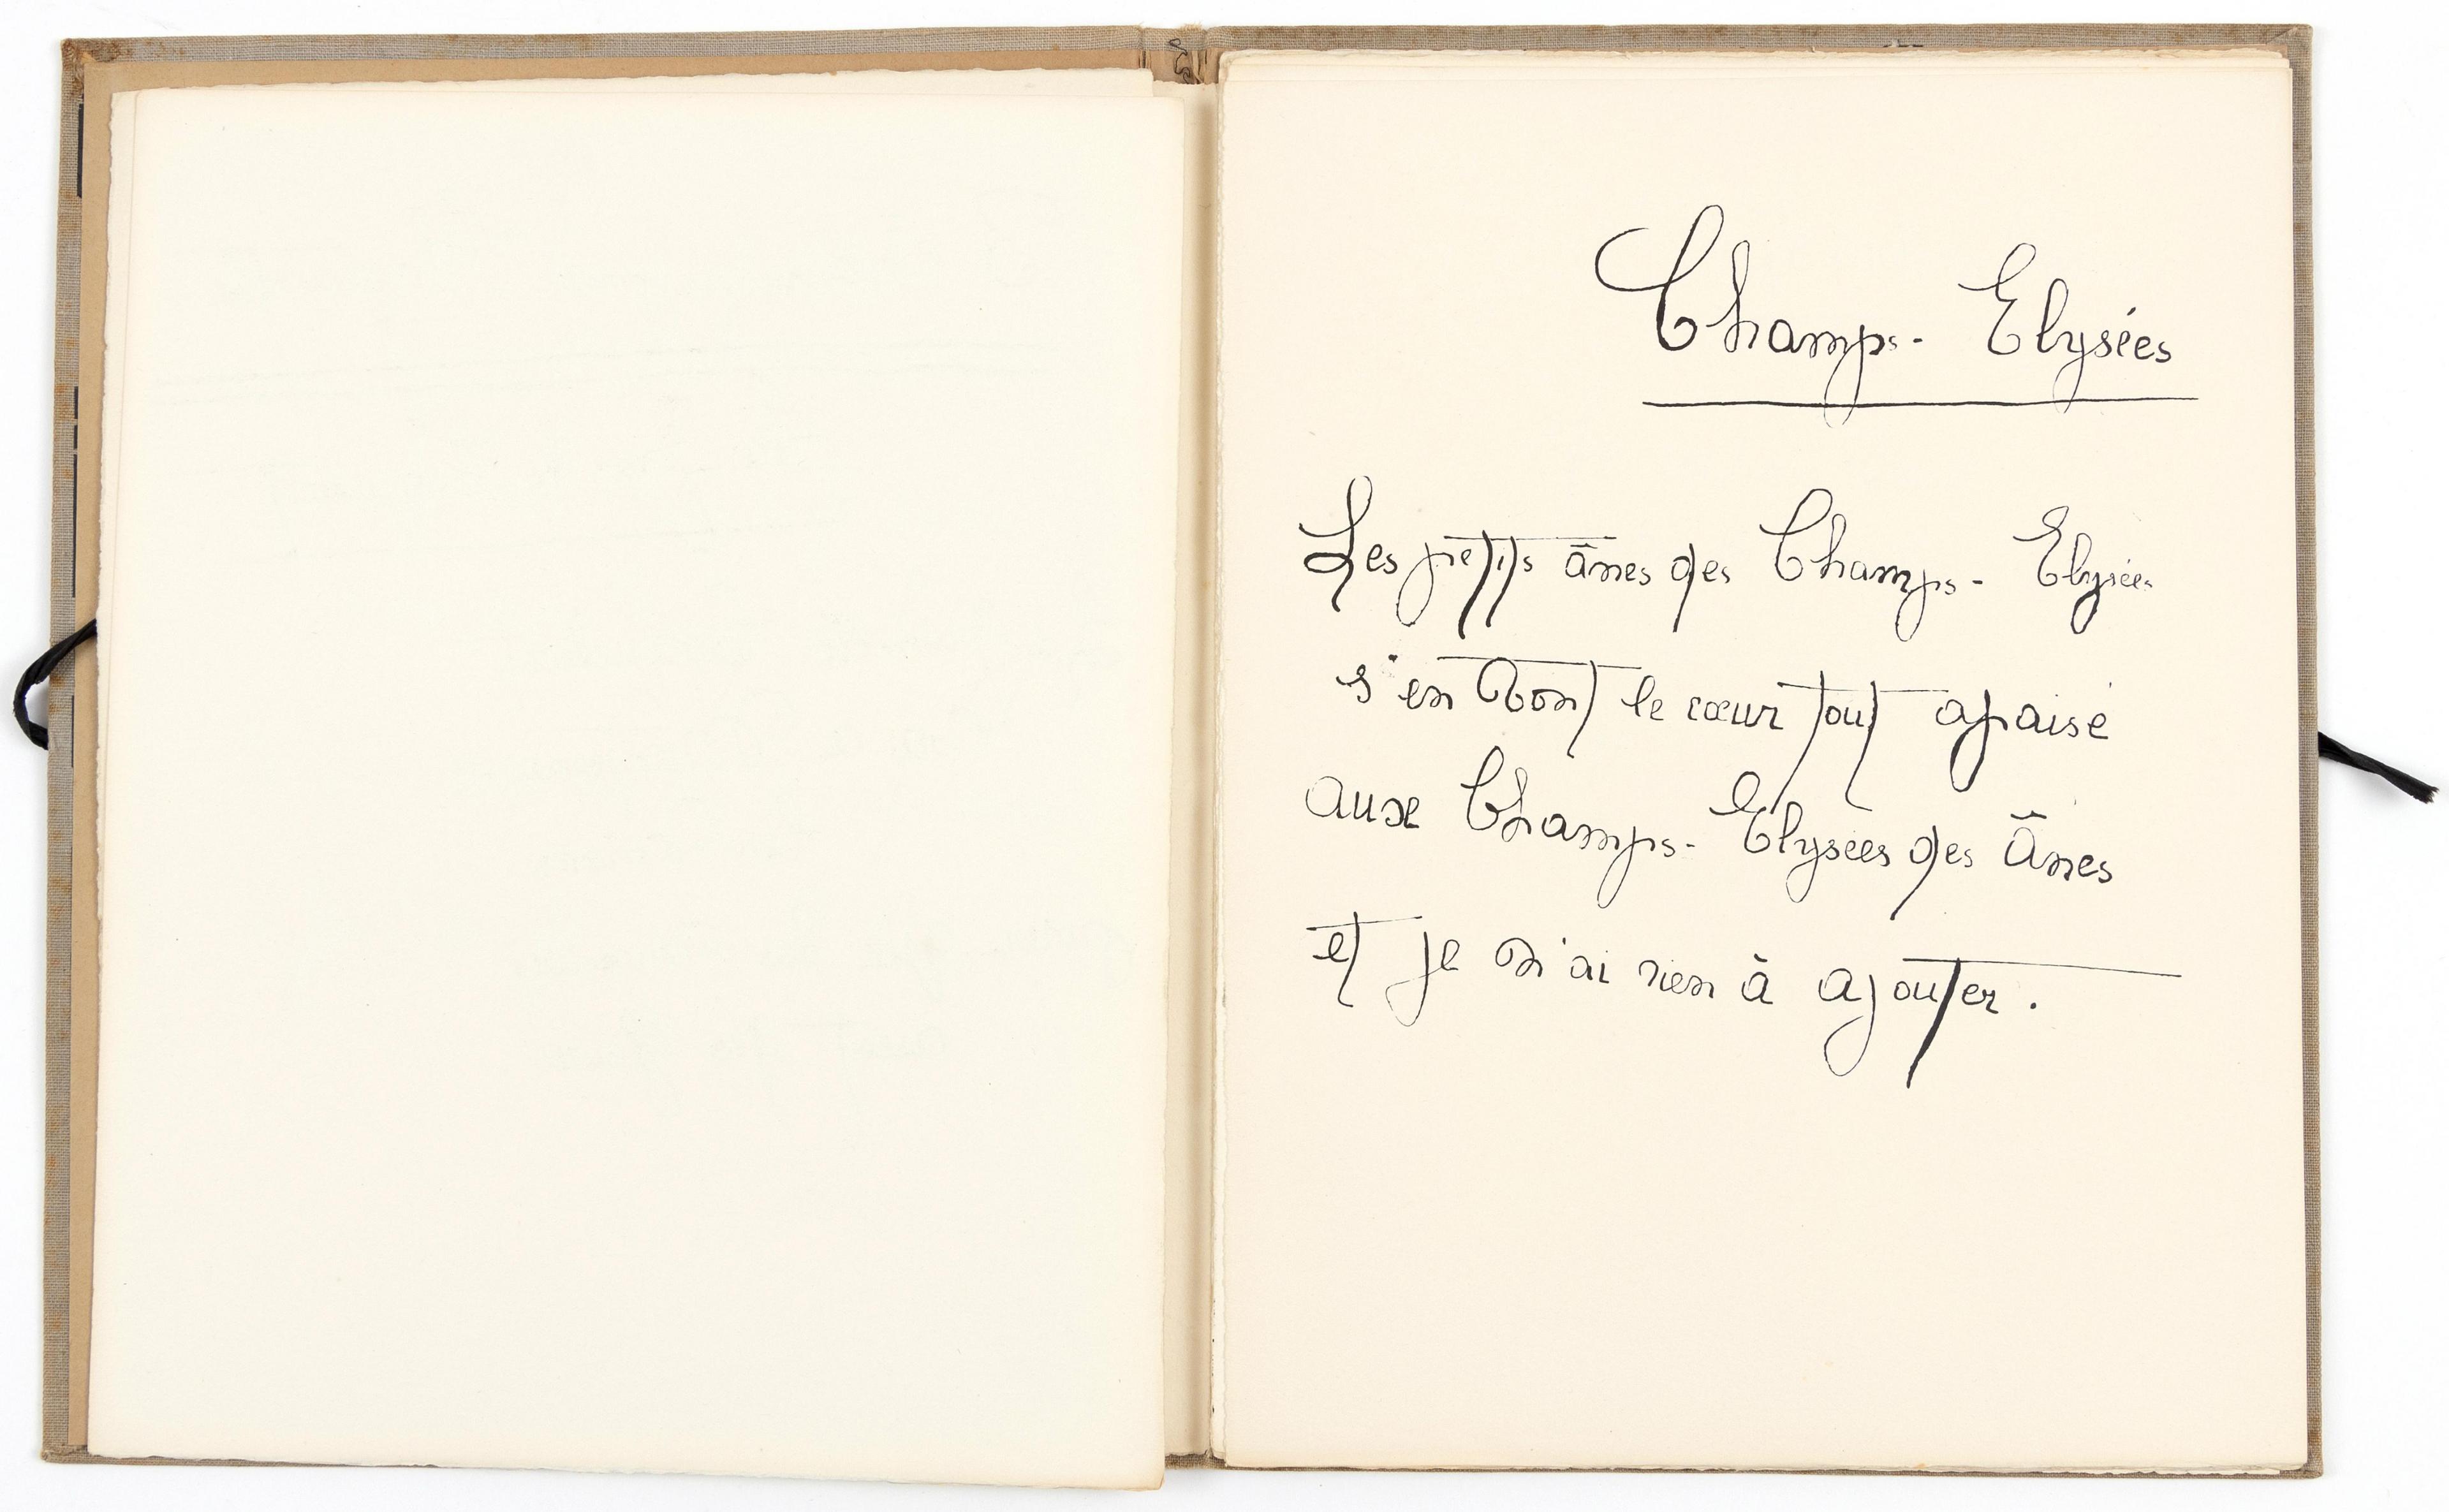 Champs- Elysées
Les petits ânes des Champs- Elysées
s'en vont le cœur tout apaisé
aux Champs- Elysées des ânes
et je n'ai rien à ajouter.